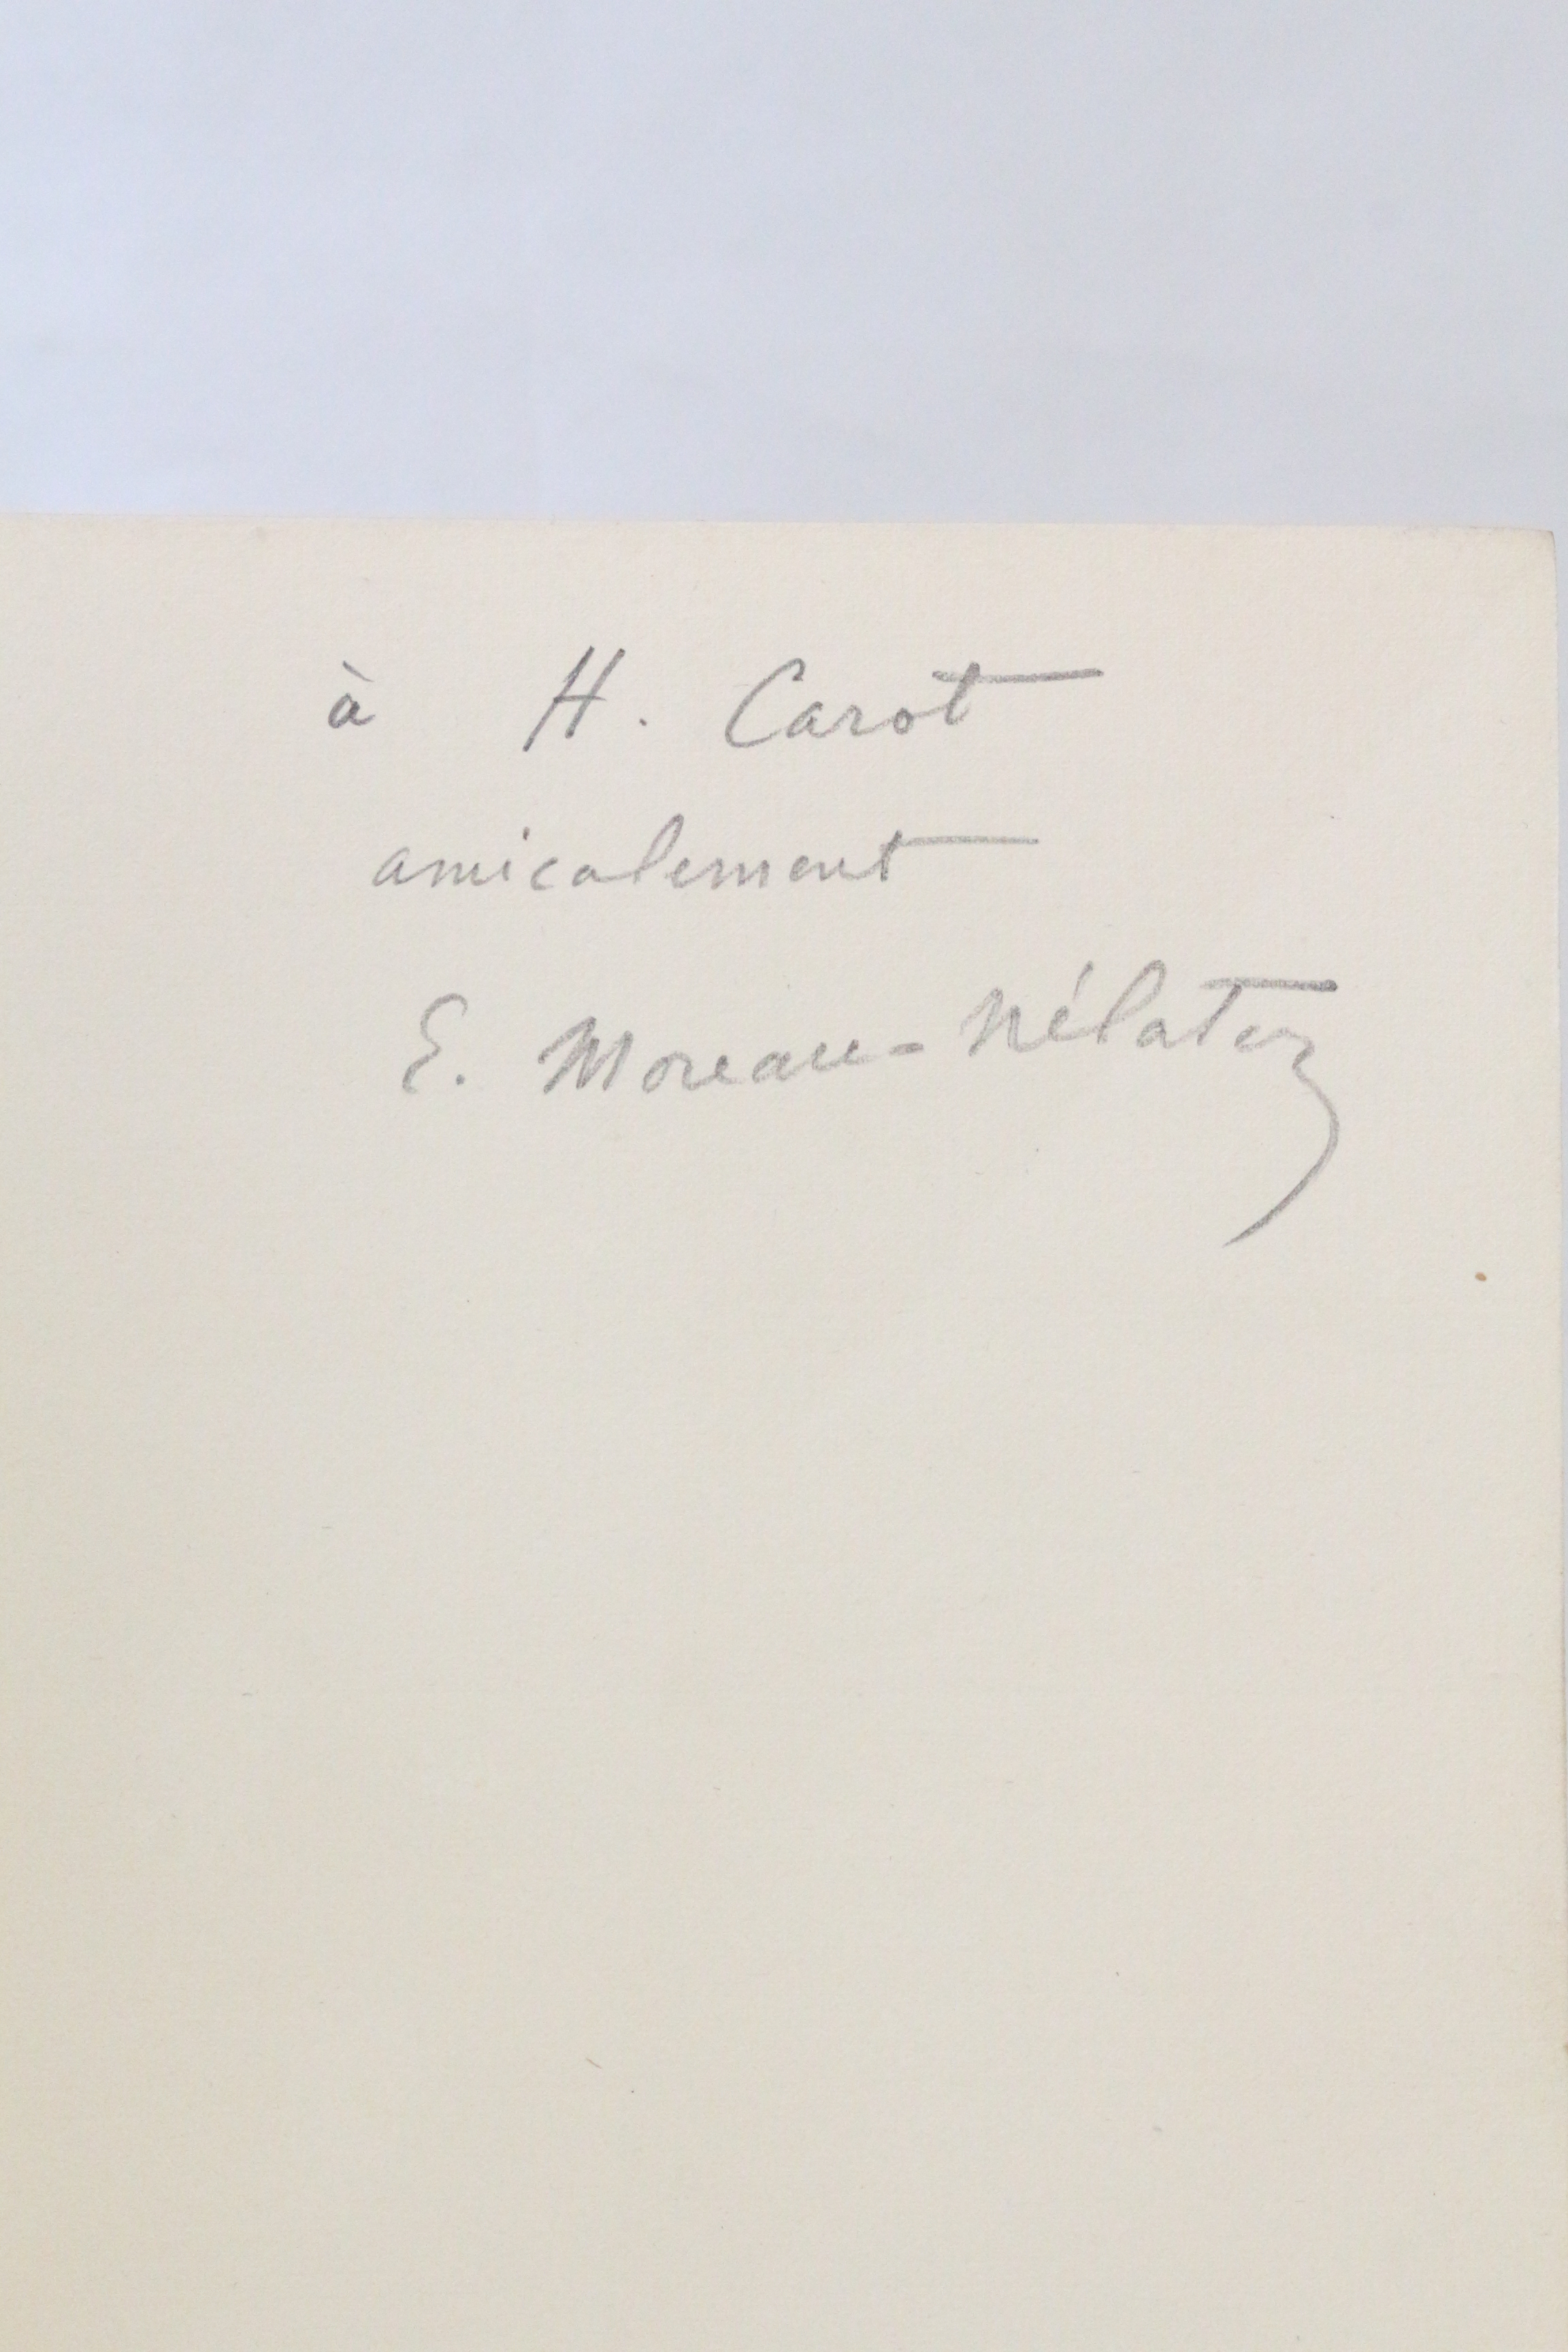 à H. Carot
amicalement
E. Moreau-Nélaton